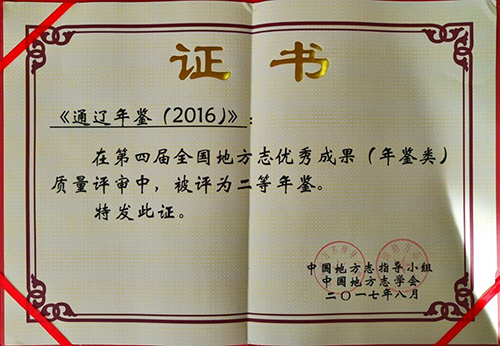 证书
《通辽年鉴（2016）》：
在第四届全国地方志优秀成果（年鉴类）
质量评审中，被评为二等年鉴。
特发此证。
中国地方志指导小组
中国地方志学会
二〇一七年八月